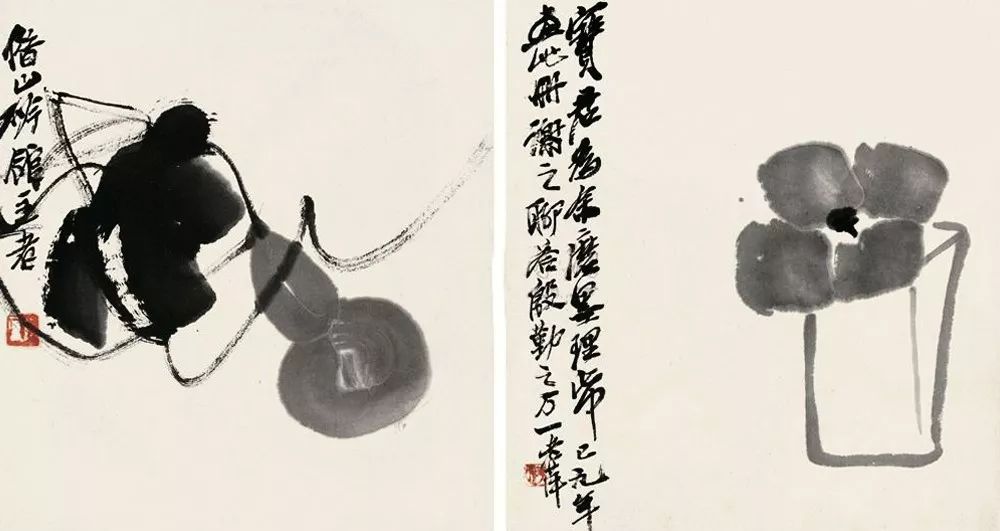 借山吟館主者
寶君為余磨墨理帋已九年
畫此冊謝之聊答殷勤之万一老萍